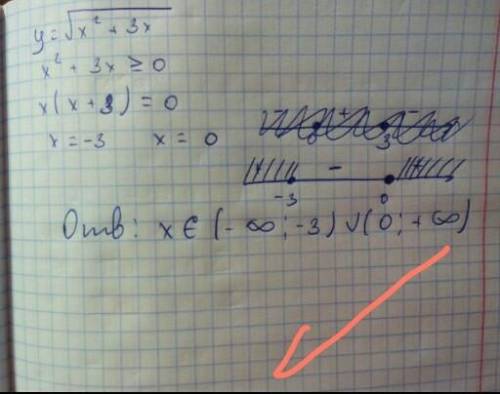 y = √x² + 3x
x² + 3x ≥ 0
x(x + 3) = 0
x = -3 x = 0
+ - +
-3 0
Отв: x ∈ (-∞; -3) ∪ (0; +∞)